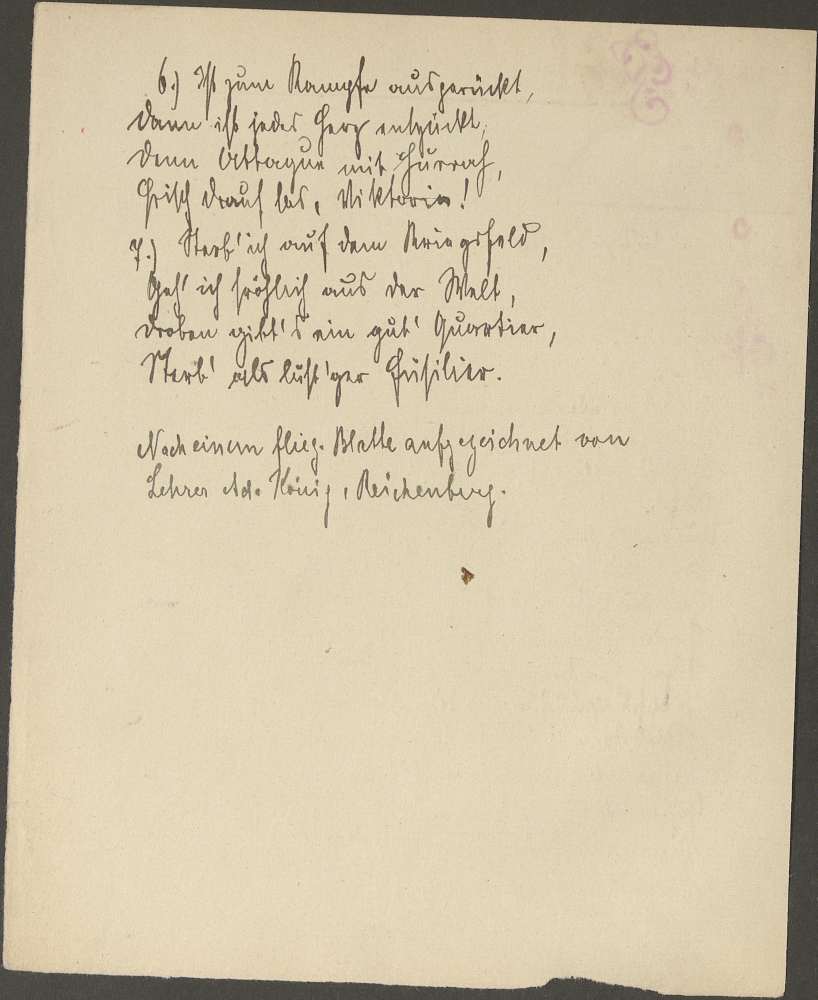 6.) Ist zum Kampfe ausgerückt,
Dann ist jedes Herz entzückt,
Denn Attaque mit Hurrah,
Frisch drauf los, Viktoria!
7.) Sterb' ich auf dem Kriegsfeld,
Geh' ich fröhlich aus der Welt,
Droben gibt's ein gut' Quartier,
Sterb' als lust'ger Füsilier.
Nach einem flieg. Blatte aufgezeichnet von
Lehrer Ad. König, Reichenberg.